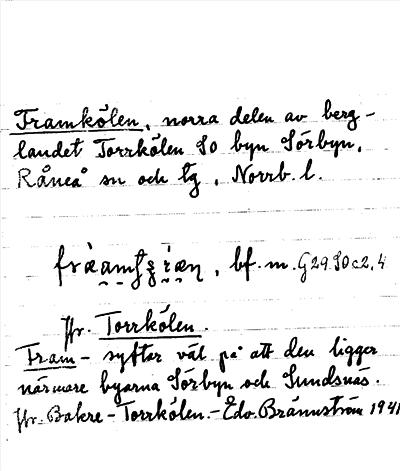 Framkölen, norra delen av berg-
landet Torrkölen SO byn Sörbyn,
Råneå sn och tg, Norrb. l.
bf. m. G29 SO c2,4
Jfr. Torrkölen.
Fram- syftar väl på att den ligger
närmare byarna Sörbyn och Sundsnäs.
Jfr. Bakre-Torrkölen.- Edv. Brännström 1941